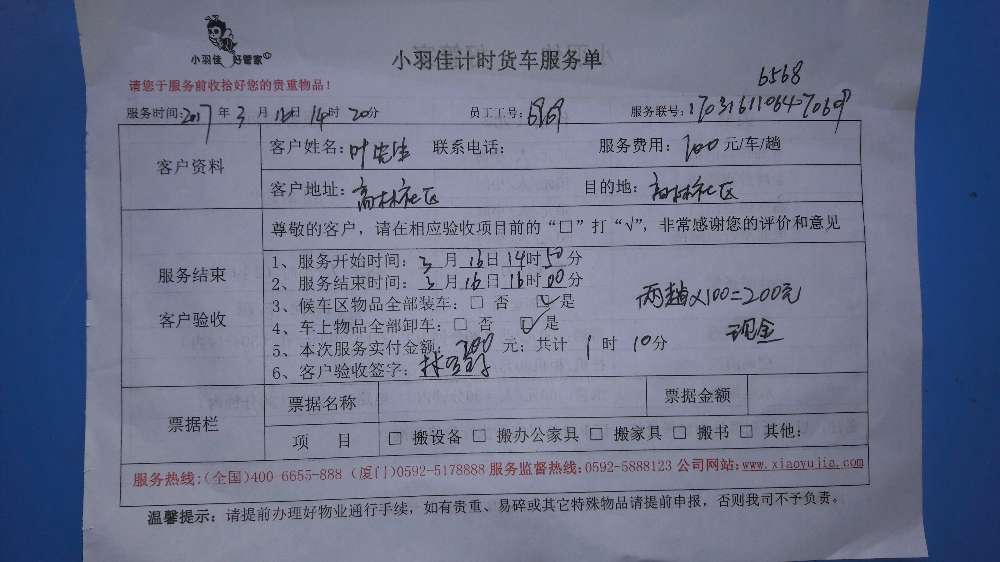 小羽佳 好管家
小羽佳计时货车服务单
6568
请您于服务前收拾好您的贵重物品！
服务时间:2017年3月16日14时20分 员工工号: 服务联号:
客户资料
客户姓名:叶先生 联系电话: 服务费用:100元/车/趟
客户地址:高林社区 目的地:高林社区
服务结束
客户验收
尊敬的客户，请在相应验收项目前的“□”打“√”，非常感谢您的评价和意见
1、服务开始时间：3月16日14时50分
2、服务结束时间：3月16日16时00分
3、候车区物品全部装车：□ 否 ☑ 是
两趟×100=200元
4、车上物品全部卸车：□ 否 ☑ 是
现金
5、本次服务实付金额：200元；共计 1时10分
6、客户验收签字：
票据栏
票据名称 票据金额
项 目 □ 搬设备 □ 搬办公家具 □ 搬家具 □ 搬书 □ 其他:
服务热线:(全国)400-6655-888 (厦门)0592-5178888 服务监督热线:0592-5888123 公司网站:www.xiaoyujia.com
温馨提示：请提前办理好物业通行手续，如有贵重、易碎或其它特殊物品请提前申报，否则我司不予负责。